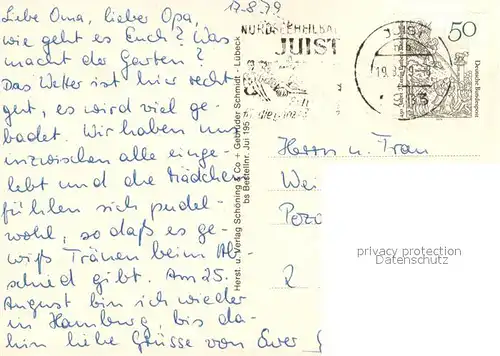 17.8.79
Liebe Oma, lieber Opa,
wie geht es Euch? Was
macht der Garten?
Das Wetter ist hier recht
gut, es wird viel ge-
badet. Wir haben uns
inzwischen alle einge-
lebt und die Mädchen
fühlen sich pudel-
wohl, so daß es ge-
wiß Tränen beim Ab-
schied gibt. Am 25.
August bin ich wieder
in Hamburg, bis da-
hin liebe Grüsse von Euer
Herst. u. Verlag Schöning & Co + Gebrüder Schmidt · Lübeck
bs Bestellnr. Jui 195
NORDSEEHEILBAD
JUIST
JUIST
50
Deutsche Bundespost
Herrn u. Frau
Wei
2
privacy protection
Datenschutz